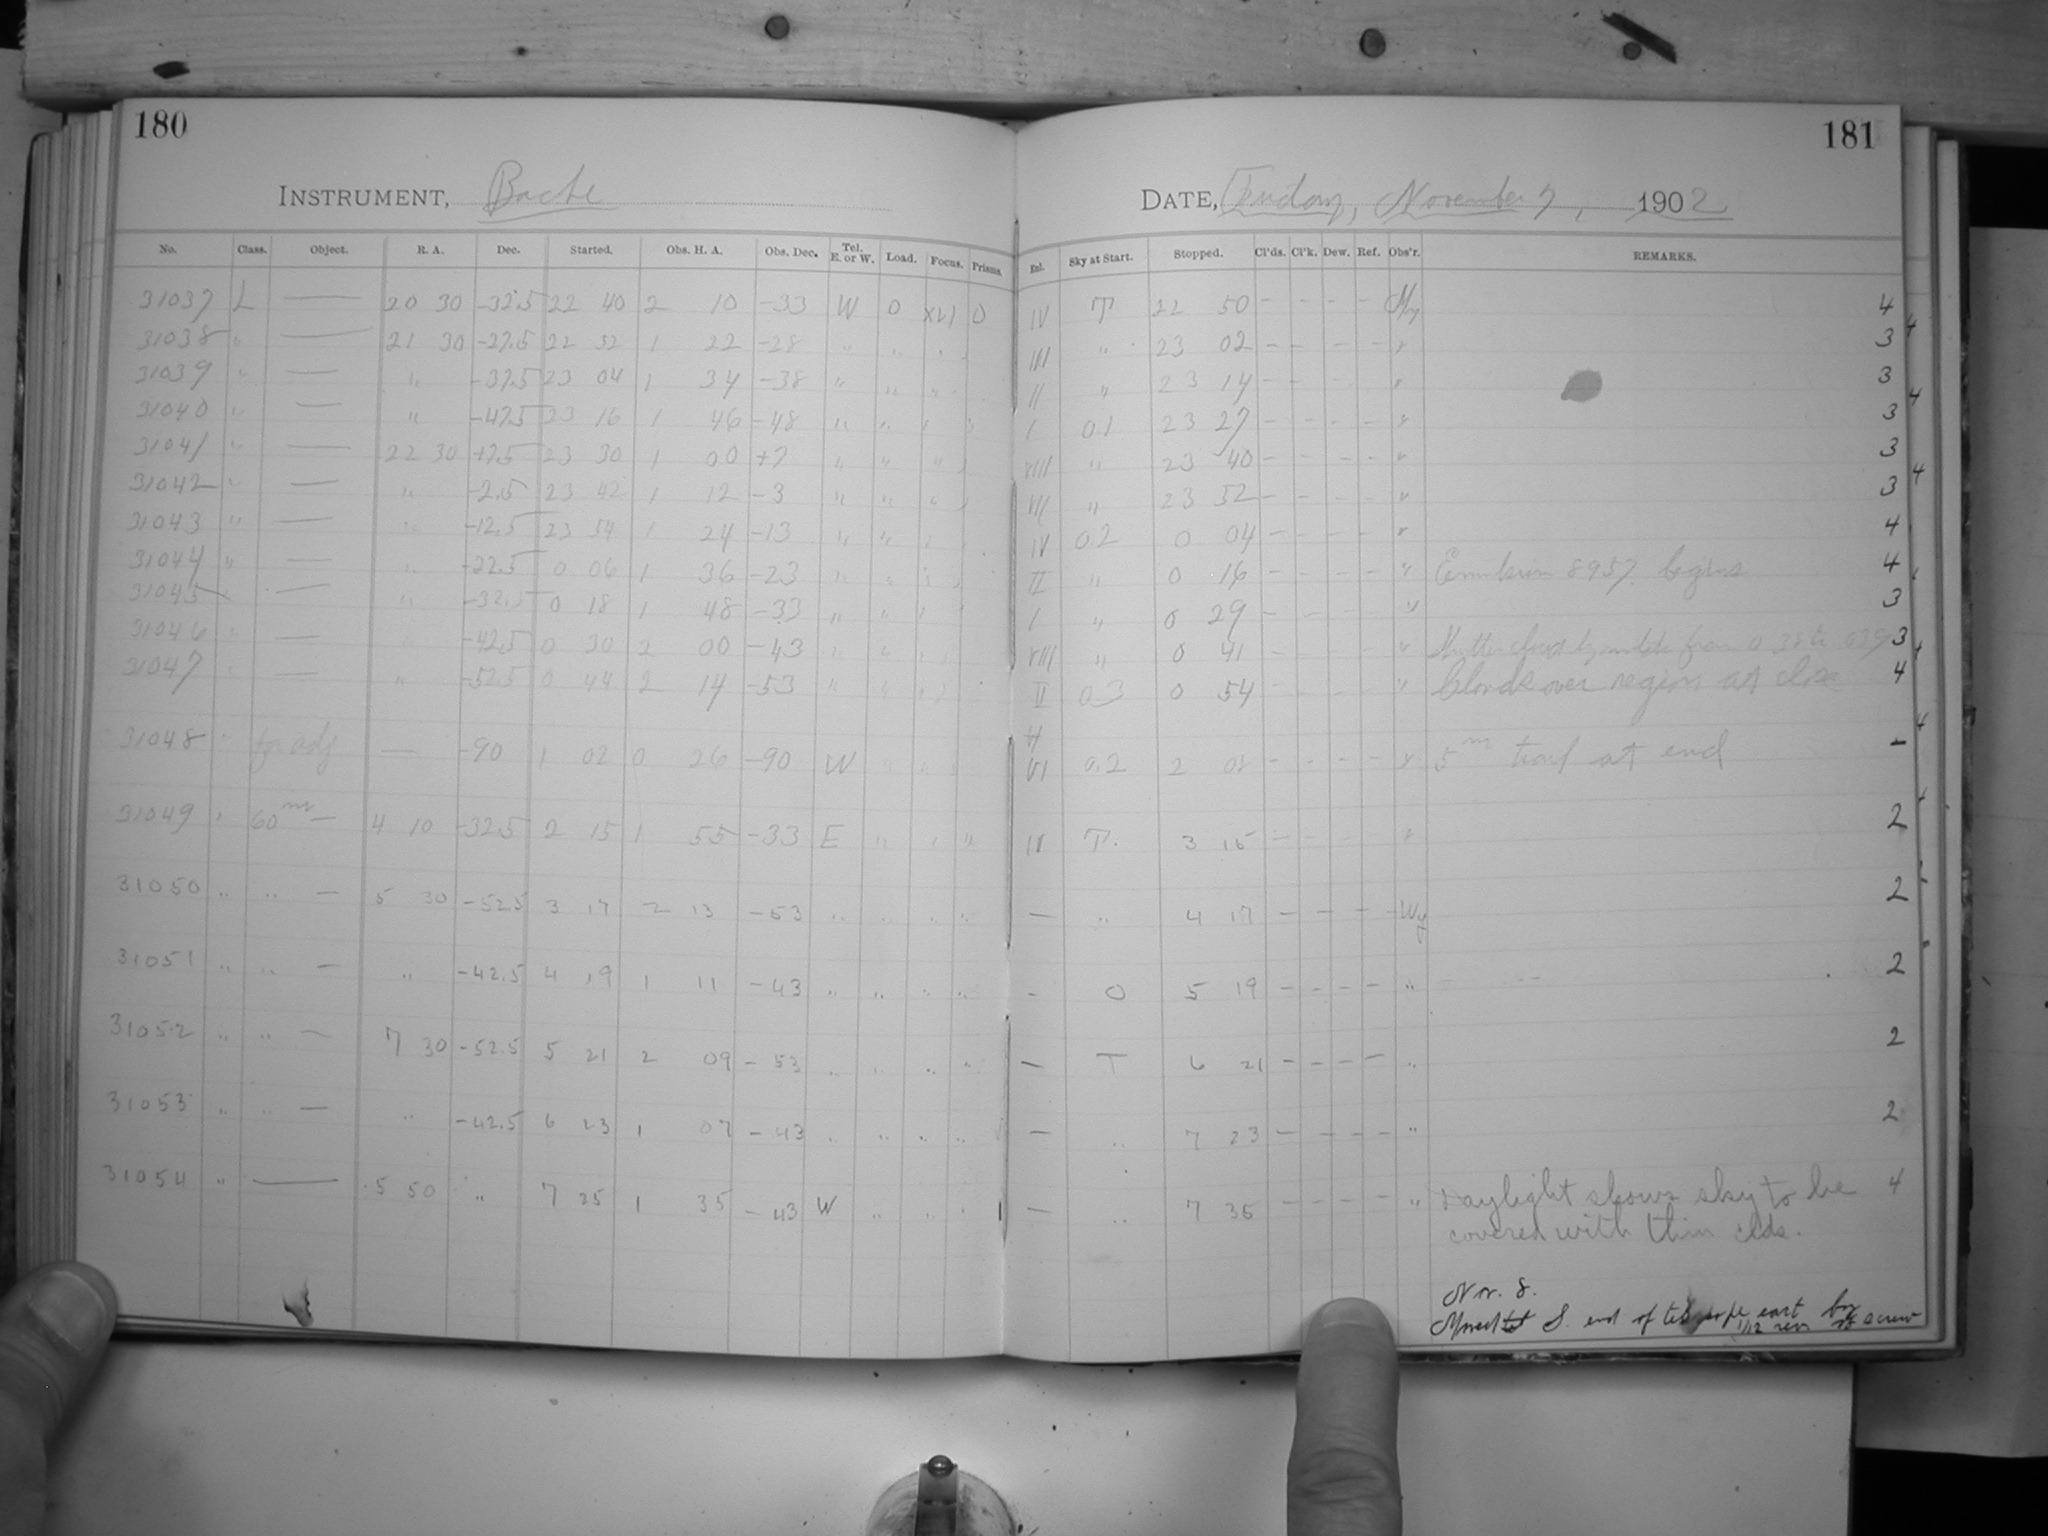 180
181
INSTRUMENT, Bache
DATE, Friday, November 7, 1902
No. Class. Object. R. A. Dec. Started. Obs. H. A. Obs. Dec. Tel. E. or W. Load. Focus. Prisms. Enl. Sky at Start. Stopped. Cl'ds. Cl'k. Dew. Ref. Obs'r. REMARKS.
31037 L — 20 30 -32.5 22 40 2 10 -33 W 0 XVI 0 IV T 22 50 - - - - My 4
31038 " — 21 30 -27.5 22 52 1 22 -28 " " " " III " 23 02 - - - - " 3
31039 " — " -37.5 23 04 1 34 -38 " " " " II " 23 14 - - - - " 3
31040 " — " -47.5 23 16 1 46 -48 " " " " I 0.1 23 27 - - - - " 3
31041 " — 22 30 +7.5 23 30 1 00 +7 " " " " VIII " 23 40 - - - - " 3
31042 " — " -2.5 23 42 1 12 -3 " " " " VII " 23 52 - - - - " 3
31043 " — " -12.5 23 54 1 24 -13 " " " " IV 0.2 0 04 - - - - " 4
31044 " — " -22.5 0 06 1 36 -23 " " " " II " 0 16 - - - - " Emulsion 8957 begins 4
31045 " — " -32.5 0 18 1 48 -33 " " " " I " 0 29 - - - - " 3
31046 " — " -42.5 0 30 2 00 -43 " " " " VIII " 0 41 - - - - " Shutter closed by mistake from 0 38 to 0 39 3
31047 " — " -52.5 0 44 2 14 -53 " " " " II 0.3 0 54 - - - - " Clouds over region at close 4
31048 " for adj — -90 1 02 0 26 -90 W " " " VI 0.2 2 02 - - - - " 5m trail at end -
31049 " 60m — 4 10 -32.5 2 15 1 55 -33 E " " " IV T. 3 15 - - - - " 2
31050 " " — 5 30 -52.5 3 17 2 13 -53 " " " " — " 4 17 - - - - Wy 2
31051 " " — " -42.5 4 19 1 11 -43 " " " " - 0 5 19 - - - - " 2
31052 " " — 7 30 -52.5 5 21 2 09 -53 " " " " — T 6 21 - - - - " 2
31053 " " — " -42.5 6 23 1 07 -43 " " " " — " 7 23 - - - - " 2
31054 " — 5 50 " 7 25 1 35 -43 W " " " — " 7 35 - - - - " Daylight shows sky to be 4
covered with thin clds.
Nov. 8.
Moved S. end of telescope east by
1/12 rev of screw